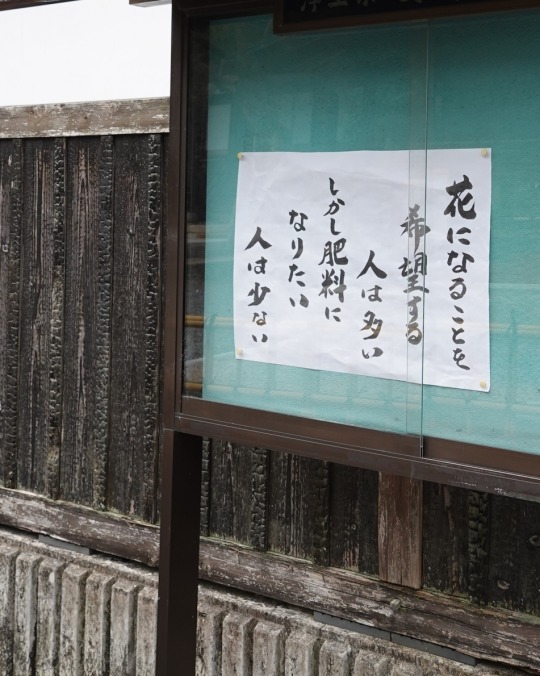 花になることを
希望する
人は多い
しかし肥料に
なりたい
人は少ない